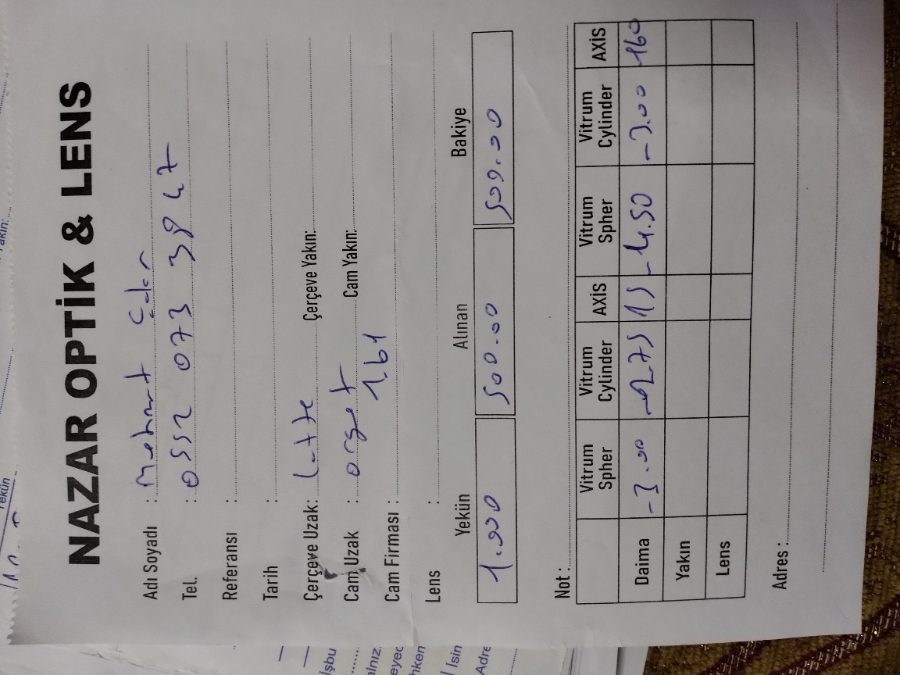 NAZAR OPTİK & LENS
Adı Soyadı : Mehmet
Tel. : 0552 073 3947
Referansı :
Tarih :
Çerçeve Uzak: Çerçeve Yakın:
Cam Uzak : Cam Yakın:
Cam Firması : 161
Lens :
Yekün Alınan Bakiye
1.000 500.00 500.00
Not :
Vitrum Spher Vitrum Cylinder AXIS Vitrum Spher Vitrum Cylinder AXIS
Daima -3.00 15 -4.50 -3.00 160
Yakın
Lens
Adres :
Yakın:
Yekün
İşbu
Adre